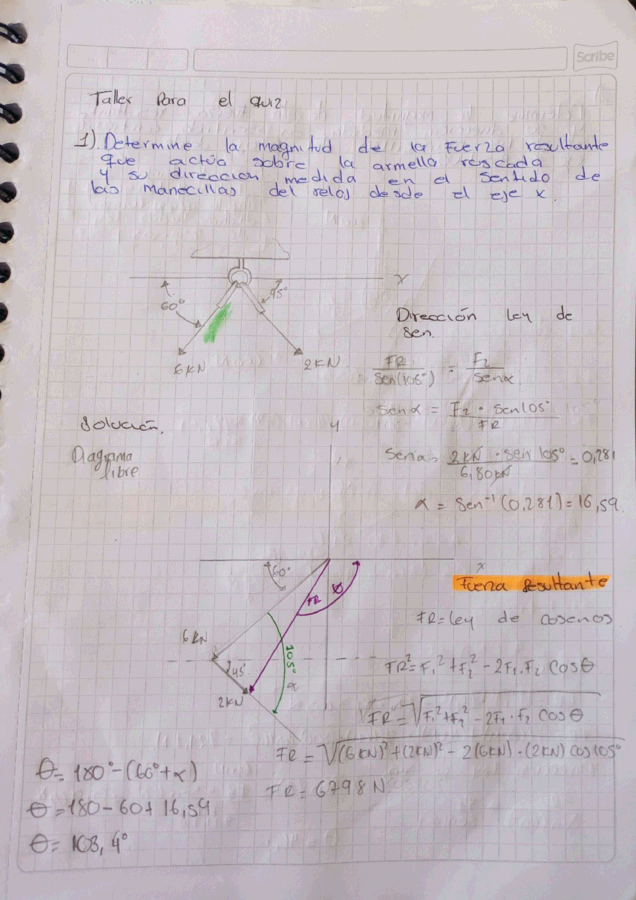 Scribe
Taller Para el quiz
1). Determine la magnitud de la Fuerza resultante
que actúa sobre la armella roscada
y su direccion medida en el sentido de
las manecillas del reloj desde el eje x.
x
60°
45°
6KN
2KN
Dirección ley de
sen.
FR / Sen(105°) = F2 / Sen α
Sen α = F2 · sen105° / FR
Sen α = 2KN · sen 105° / 6,80KN = 0,281
α = Sen⁻¹(0,281) = 16,59
Solución.
Diagrama
libre
y
x
60°
FR
6KN
45°
105°
α
2KN
Fuerza Resultante
FR = Ley de cosenos
FR² = F1² + F2² - 2F1 · F2 Cos θ
FR = √F1² + F2² - 2F1 · F2 Cos θ
FR = √(6KN)² + (2KN)² - 2(6KN) · (2KN) cos 105°
FR = 6798 N
θ = 180° - (60° + α)
θ = 180 - 60 + 16,59
θ = 103,4°